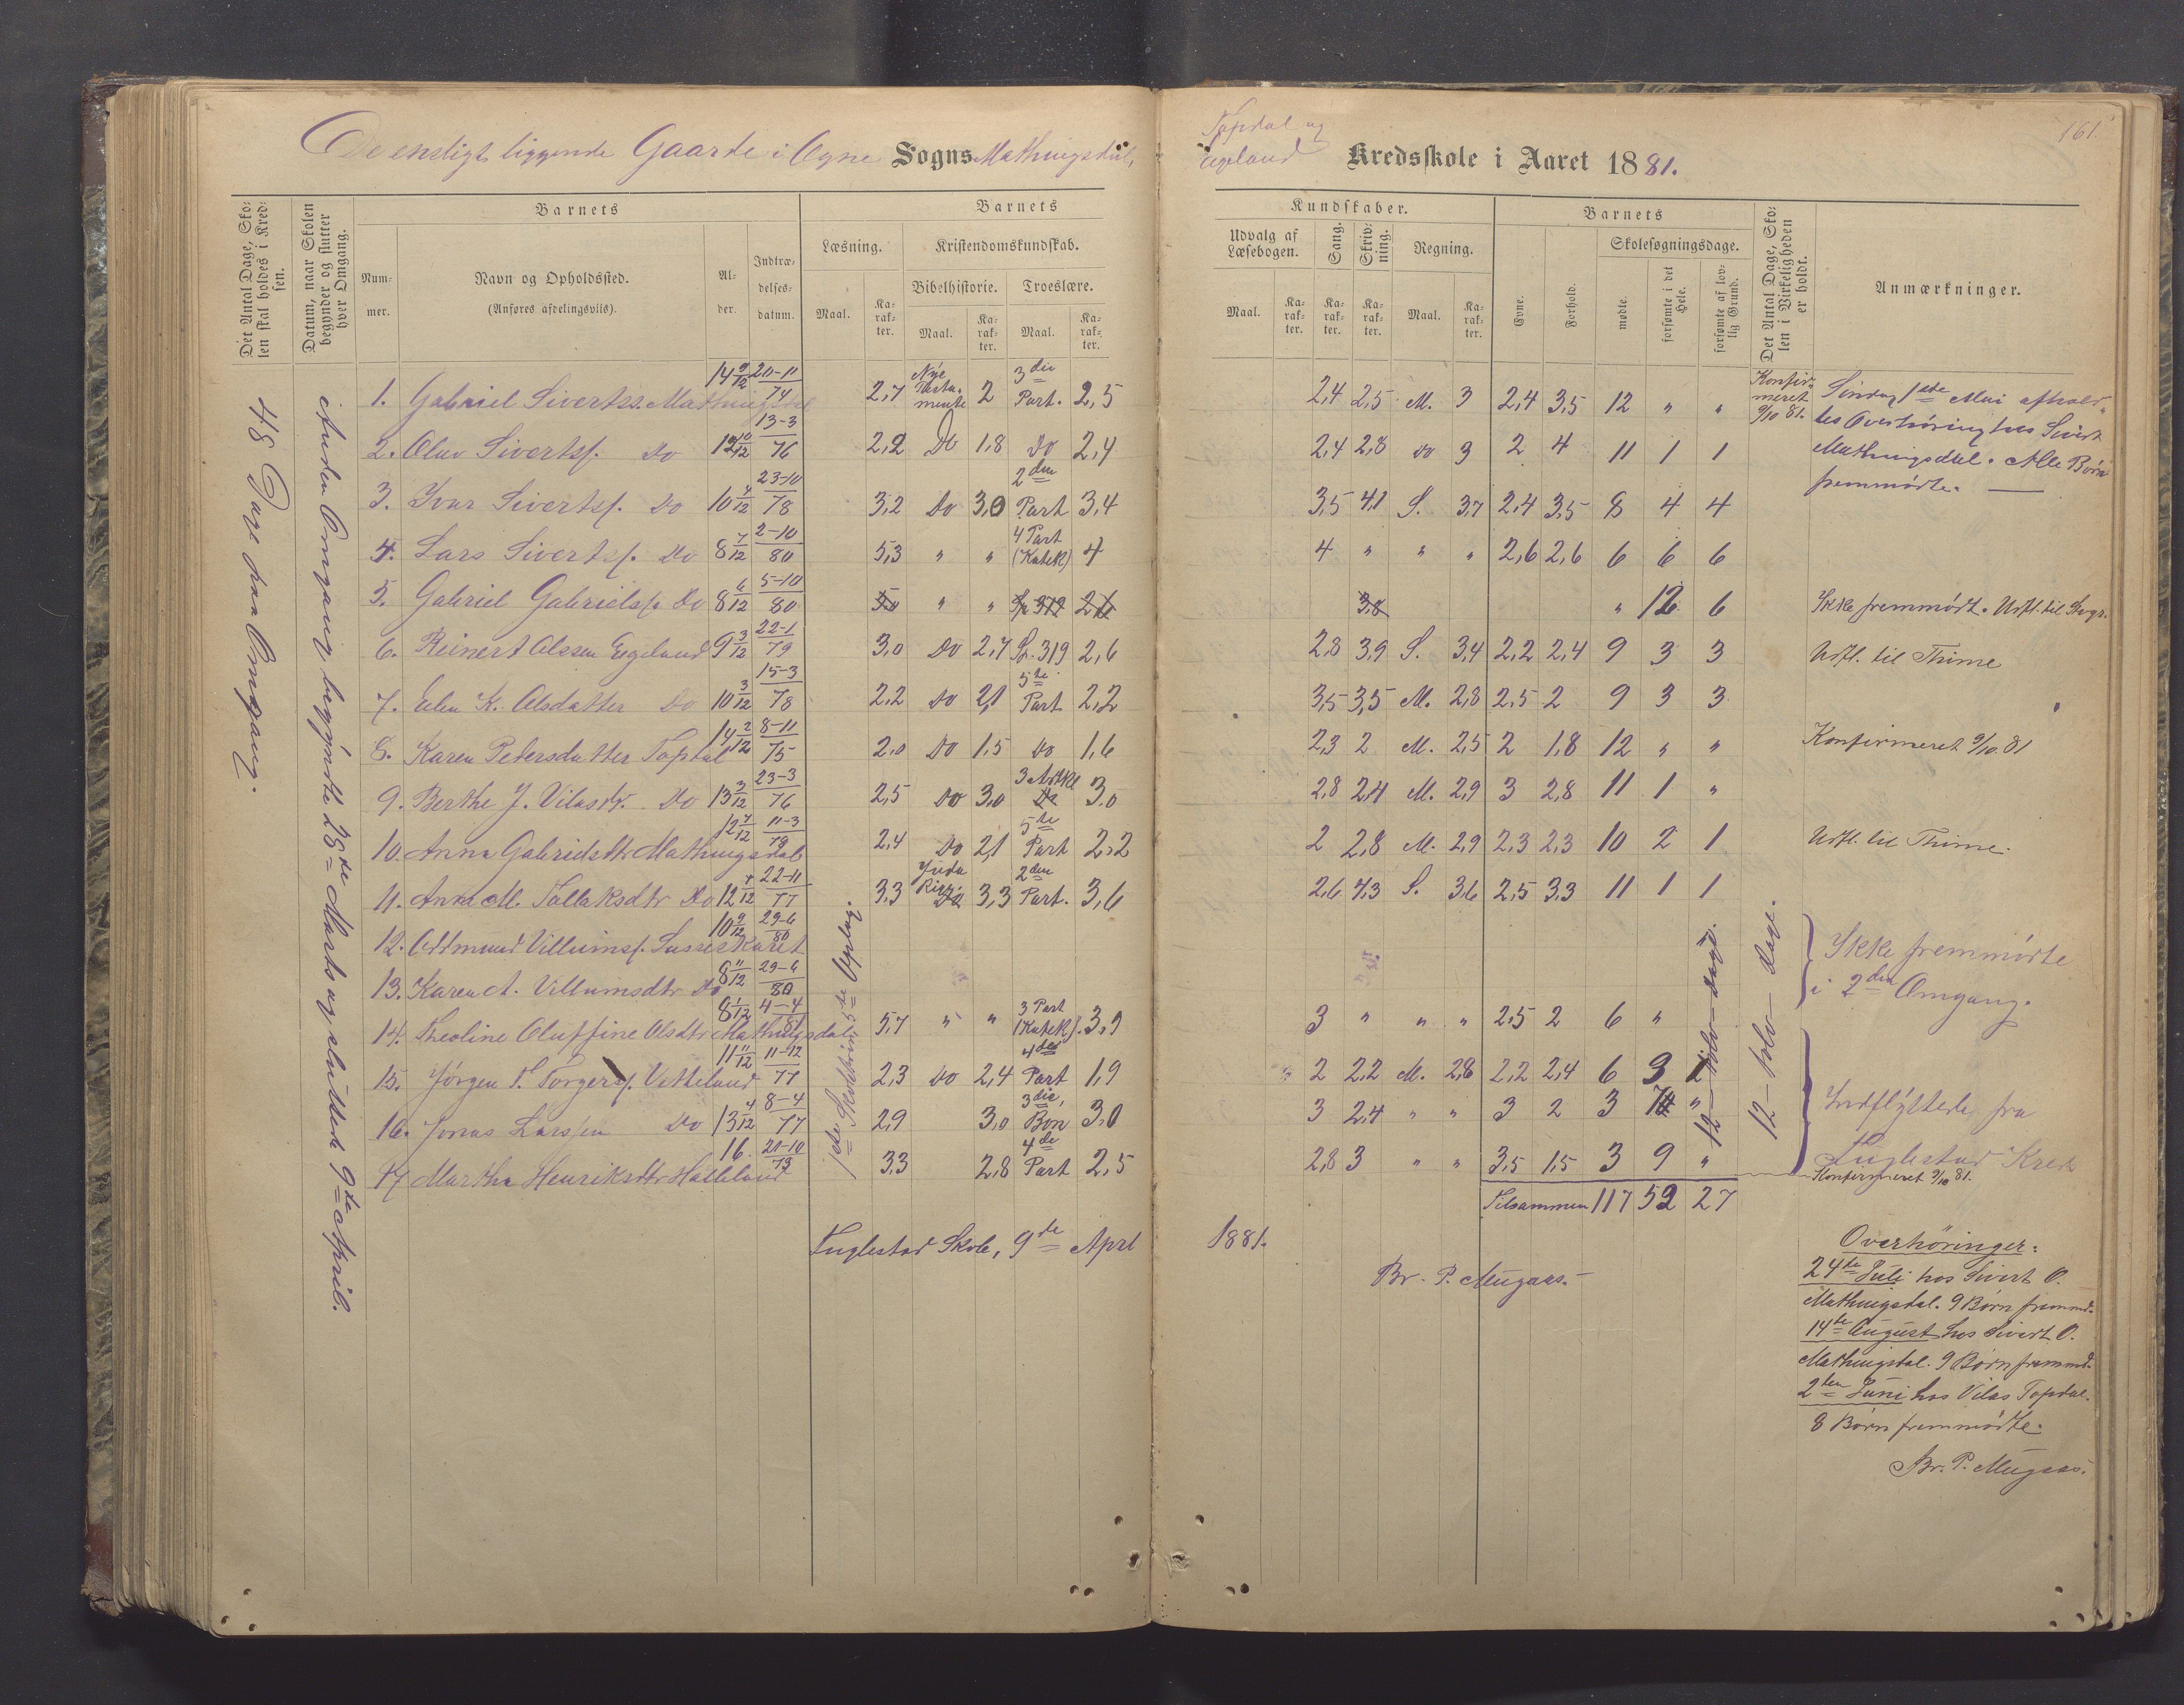 De enesligt liggende Gaarde i Ogne Sogns Mathingsdal, Topdal og Egeland Kredsskole i Aaret 1881.
161.
Det Antal Dage, Skolen skal holdes i Kredsen.
Datum, naar Skolen begynder og slutter hver Omgang.
Barnets
Nummer.
Navn og Opholdssted.
(Anføres afdelingsviis).
Alder.
Indtrædelsesdatum.
Barnets Kundskaber.
Læsning.
Kristendomskundskab.
Bibelhistorie. Troeslære.
Maal. Karakter. Maal. Karakter. Maal. Karakter.
Udvalg af Læsebogen.
Sang. Skrivning. Regning.
Maal. Karakter. Karakter. Karakter. Maal. Karakter.
Barnets
Evne. Forhold.
Skolesøgningsdage.
mødte. forsømte i det Hele. forsømte af lovlig Grund.
Det Antal Dage, Skolen i Virkeligheden er holdt.
Anmærkninger.
48 Dage paa Omgang.
Anden Omgang begyndte 28de Marts og sluttede 9de April.
1. Gabriel Sivertss. Mathingsdal 14 9/12 20-11/74 2,7 Nye Testamente 2 3die Part. 2,5 2,4 2,5 M. 3 2,4 3,5 12 " " Konfirmeret 9/10 81. Søndag 1ste Mai afhold-
2. Olav Sivertsf. Do 12 10/12 13-3/76 2,2 Do 1,8 Do 2,4 2,4 2,8 Do 3 2 4 11 1 1 tes Overhøring hos Sivert
Mathingsdal. Alle Børn
3. Ivar Sivertsf. Do 10 4/12 23-10/78 3,2 Do 3,0 2den Part 3,4 3,5 4,1 S. 3,7 2,4 3,5 8 4 4 fremmødte.
4. Lars Sivertsf. Do 8 7/12 2-10/80 5,3 " " 4 Part (Katek) 4 4 " " " 2,6 2,6 6 6 6
5. Gabriel Gabrielsf. Do 8 6/12 5-10/80 5,0 " " Sp 319 3,8 " 12 6 Ikke fremmødt. Udfl. til Sogn.
6. Reinert Olssen Egeland 9 3/12 22-1/79 3,0 Do 2,7 Sp. 319 2,6 2,8 3,9 S. 3,4 2,2 2,4 9 3 3 Udfl. til Thime
7. Elen K. Olsdatter Do 10 3/12 15-3/78 2,2 Do 2,1 5te Part 2,2 3,5 3,5 M. 2,8 2,5 2 9 3 3
8. Karen Pedersdatter Topdal 14 2/12 8-11/75 2,0 Do 1,5 Do 1,6 2,3 2 M. 2,5 2 1,8 12 " " Konfirmeret 9/10.81
9. Berthe J. Vilasdtr. Do 13 3/12 23-3/76 2,5 Do 3,0 3 Artkl Do 3,0 2,8 2,4 M. 2,9 3 2,8 11 1 "
10. Anna Gabrielsdtr Mathingsdal 12 7/12 11-3/79 2,4 Do 2,1 5te Part 2,2 2 2,8 M. 2,9 2,3 2,3 10 2 1 Udfl. til Thime.
11. Anna M. Tollaksdtr Do 12 4/12 22-11/77 3,3 3,3 2den Part. 3,6 2,6 4,3 S. 3,6 2,5 3,3 11 1 1
12. Odmund Villumsf. Susseskaret 10 9/12 29-6/80
13. Karen A. Villumsdtr Do 8 11/12 29-6/80
Ikke fremmødte
i 2den Omgang.
14. Theoline Oluffine Olsdtr Mathingsdal 8 1/12 4-4/81 5,7 " " 3 Part (Katek). 3,9 3 " " " 2,5 2 6 "
15. Jørgen T. Torgersf. Vetteland 11 11/12 11-12/77 2,3 Do 2,4 4de Part 1,9 2 2,2 M. 2,8 2,2 2,4 6 3 1
16. Jonas Larssen Do 13 4/12 8-4/77 2,9 3,0 3die Bøn 3,0 3 2,4 " " 3 2 3 "
17 Martha Henriksdtr Hælleland 16. 21-10/73 3,3 2,8 4de Part 2,5 2,8 3 " " 3,5 1,5 3 9 "
Indflyttede fra
Fuglestad Kreds
Konfirmeret 9/10 81.
12 - tolv - dage.
12 - tolv - dage.
Tilsammen 117 52 27
Fuglestad Skole, 9de April 1881.
Br. P. Mugaas.
Overhøringer:
24de Juli hos Sivert O.
Mathingsdal. 9 Børn fremmd.
14de August hos Sivert O.
Mathingsdal. 9 Børn fremmd.
2den Juni hos Vilas Topdal.
8 Børn fremmødte.
Br. P. Mugaas.